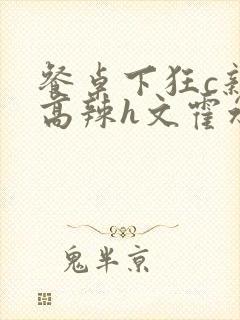 餐桌下狂c亲
高辣h文霍水
鬼半京